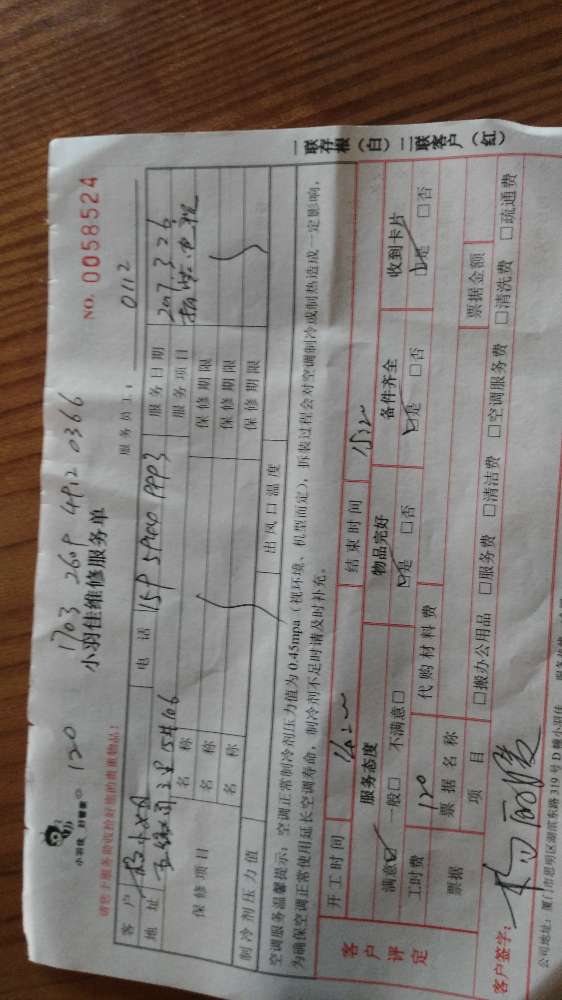 小羽佳 好管家
120
1703 2609 4912 0366
小羽佳维修服务单
NO. 0058524
请您于服务前收捡好您的贵重物品!
服务员工: 0112
客户
电话 159 5940 9993
服务日期 2017.3.26
地址
服务项目
保修项目
名称
保修期限
名称
保修期限
名称
保修期限
制冷剂压力值
出风口温度
空调服务温馨提示:空调正常制冷剂压力值为0.45mpa(视环境、机型而定),拆装过程会对空调制冷或制热造成一定影响,
为确保空调正常使用延长空调寿命,制冷剂不足时请及时补充。
一联存根(白)二联客户(红)
客户评定
开工时间
结束时间
服务态度
物品完好
备件齐全
收到卡片
满意☑ 一般□ 不满意□
☑是 □否
☑是 □否
☑是 □否
工时费 120
代购材料费
票据
票据名称
票据金额
项目
□搬办公用品 □服务费 □清洁费 □空调服务费 □清洗费 □疏通费
客户签字:
公司地址:厦门市思明区湖滨东路319号D幢小羽佳